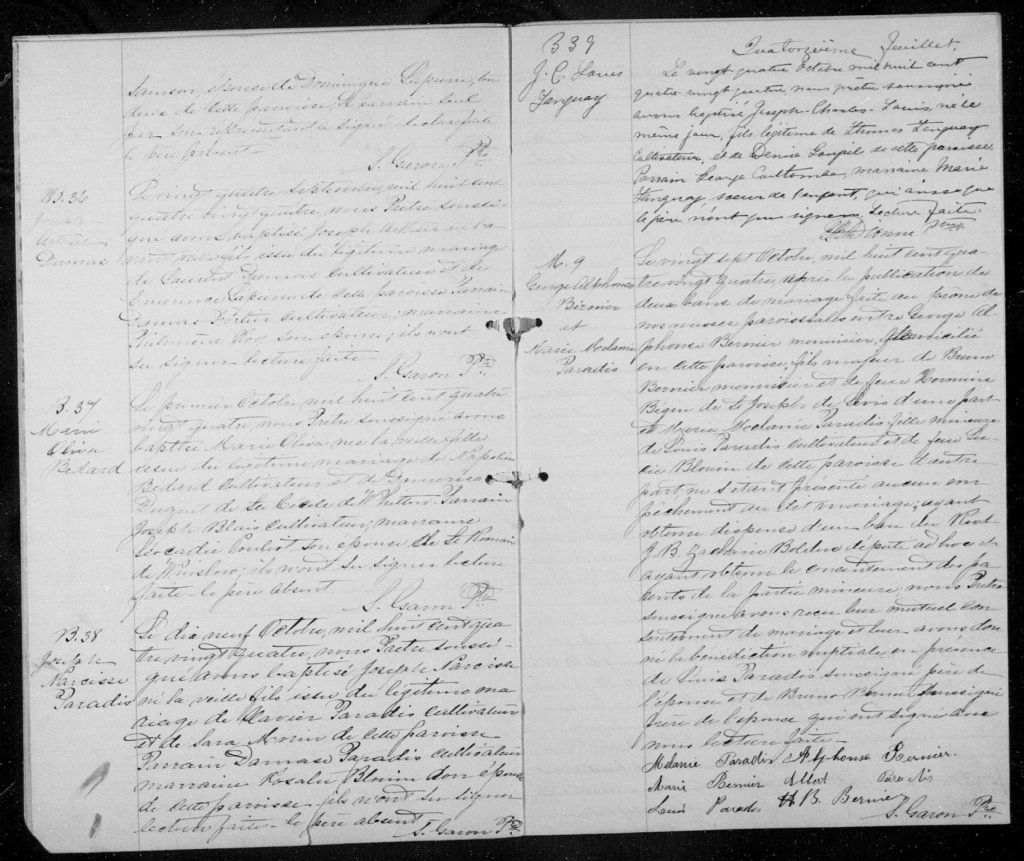 Samson, épouse de Dominique Lapierre, cu
de cette paroisse; Le parrain seul
par son représentant a signé lecture faite
le père présent -
S. Garon Ptre
B. 36
Joseph
Arthur
Damas
Le vingt quatre septembre mil huit cent
quatre vingt quatre, nous Prêtre soussi-
gné avons baptisé Joseph Arthur né la
fils issu du légitime mariage
de Damas cultivateur et de
de cette paroisse Parrain
Damas Fortier cultivateur; marraine
Philomène Roy son épouse; ils n'ont
su signer lecture faite
S. Garon Ptre
B. 37
Marie
Oliva
Bedard
Le premier Octobre mil huit cent quatre
vingt quatre, nous Prêtre soussigné avons
baptisé Marie Oliva née la veille fille
issue du légitime mariage de Napoléon
Bedard cultivateur et de
Duquet de Ste Cécile de Whitton Parrain
Joseph Blais cultivateur; marraine
Léocadie Pouliot son épouse de St Romain
de Winslow; ils n'ont su signer lecture
faite - le père absent
S. Garon Ptre
B. 38
Joseph
Narcisse
Paradis
Le dix neuf Octobre, mil huit cent qua-
tre vingt quatre, nous Prêtre soussi-
gné avons baptisé Joseph Narcisse
né la veille fils issu du légitime ma-
riage de Xavier Paradis cultivateur
et de Sara Morin de cette paroisse
Parrain Damase Paradis cultivateur
marraine Rosalie Blouin son épouse
de cette paroisse ils n'ont su signer
lecture faite - le père absent
S. Garon Ptre
B 39
J. C. Louis
Tanguay
Quatorzième Feuillet.
Le vingt quatre Octobre mil huit cent
quatre-vingt quatre nous prêtre soussigné
avons baptisé Joseph-Charles-Louis, né le
même jour, fils légitime de Thomas Tanguay
Cultivateur, et de Denise Goupil de cette paroisse
Parrain George Coulombe, marraine Marie
Tanguay soeur de l'enfant, qui ainsi que
le père n'ont pu signer. Lecture faite.
Dionne Ptre
M. 9
George Alphonse
Bernier
et
Marie Melanie
Paradis
Le vingt sept Octobre, mil huit cent qua-
tre vingt quatre, après la publication de
deux bans de mariage faite au prône de
nos messes paroissiales entre George Al-
phonse Bernier menuisier, domicilié
en cette paroisse, fils majeur de Bruno
Bernier menuisier et de feue Hermine
Bégin de St Joseph de Lévis d'une part
et Marie Melanie Paradis fille mineure
de Louis Paradis cultivateur et de feue Lu-
cie Blouin de cette paroisse d'autre
part ne s'étant présenté aucun em-
pêchement au dit mariage; ayant
obtenu dispense d'un ban du Révd
J. B. Zacharie Bolduc député ad hoc et
ayant obtenu le consentement des pa-
rents de la partie mineure; nous Prêtre
soussigné avons reçu leur mutuel con-
sentement de mariage et leur avons don-
né la bénédiction nuptiale en présence
de Louis Paradis soussigné père de
l'épouse et de Bruno Bernier soussigné
père de l'époux qui ont signé avec
nous lecture faite -
Melanie Paradis Alphonse Bernier.
Marie Bernier Albert Paradis
Louis Paradis B. Bernier
S. Garon Ptre